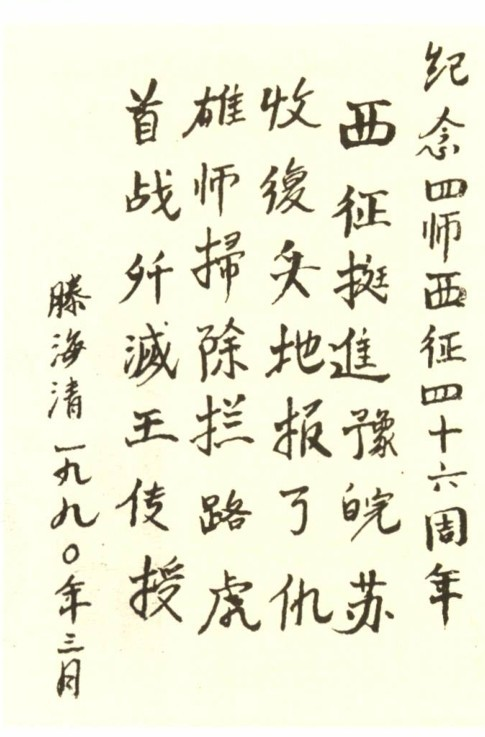 纪念四师西征四十六周年
西征挺進豫皖苏
收復失地报了仇
雄师掃除拦路虎
首战歼滅王传授
滕海清一九九〇年三月